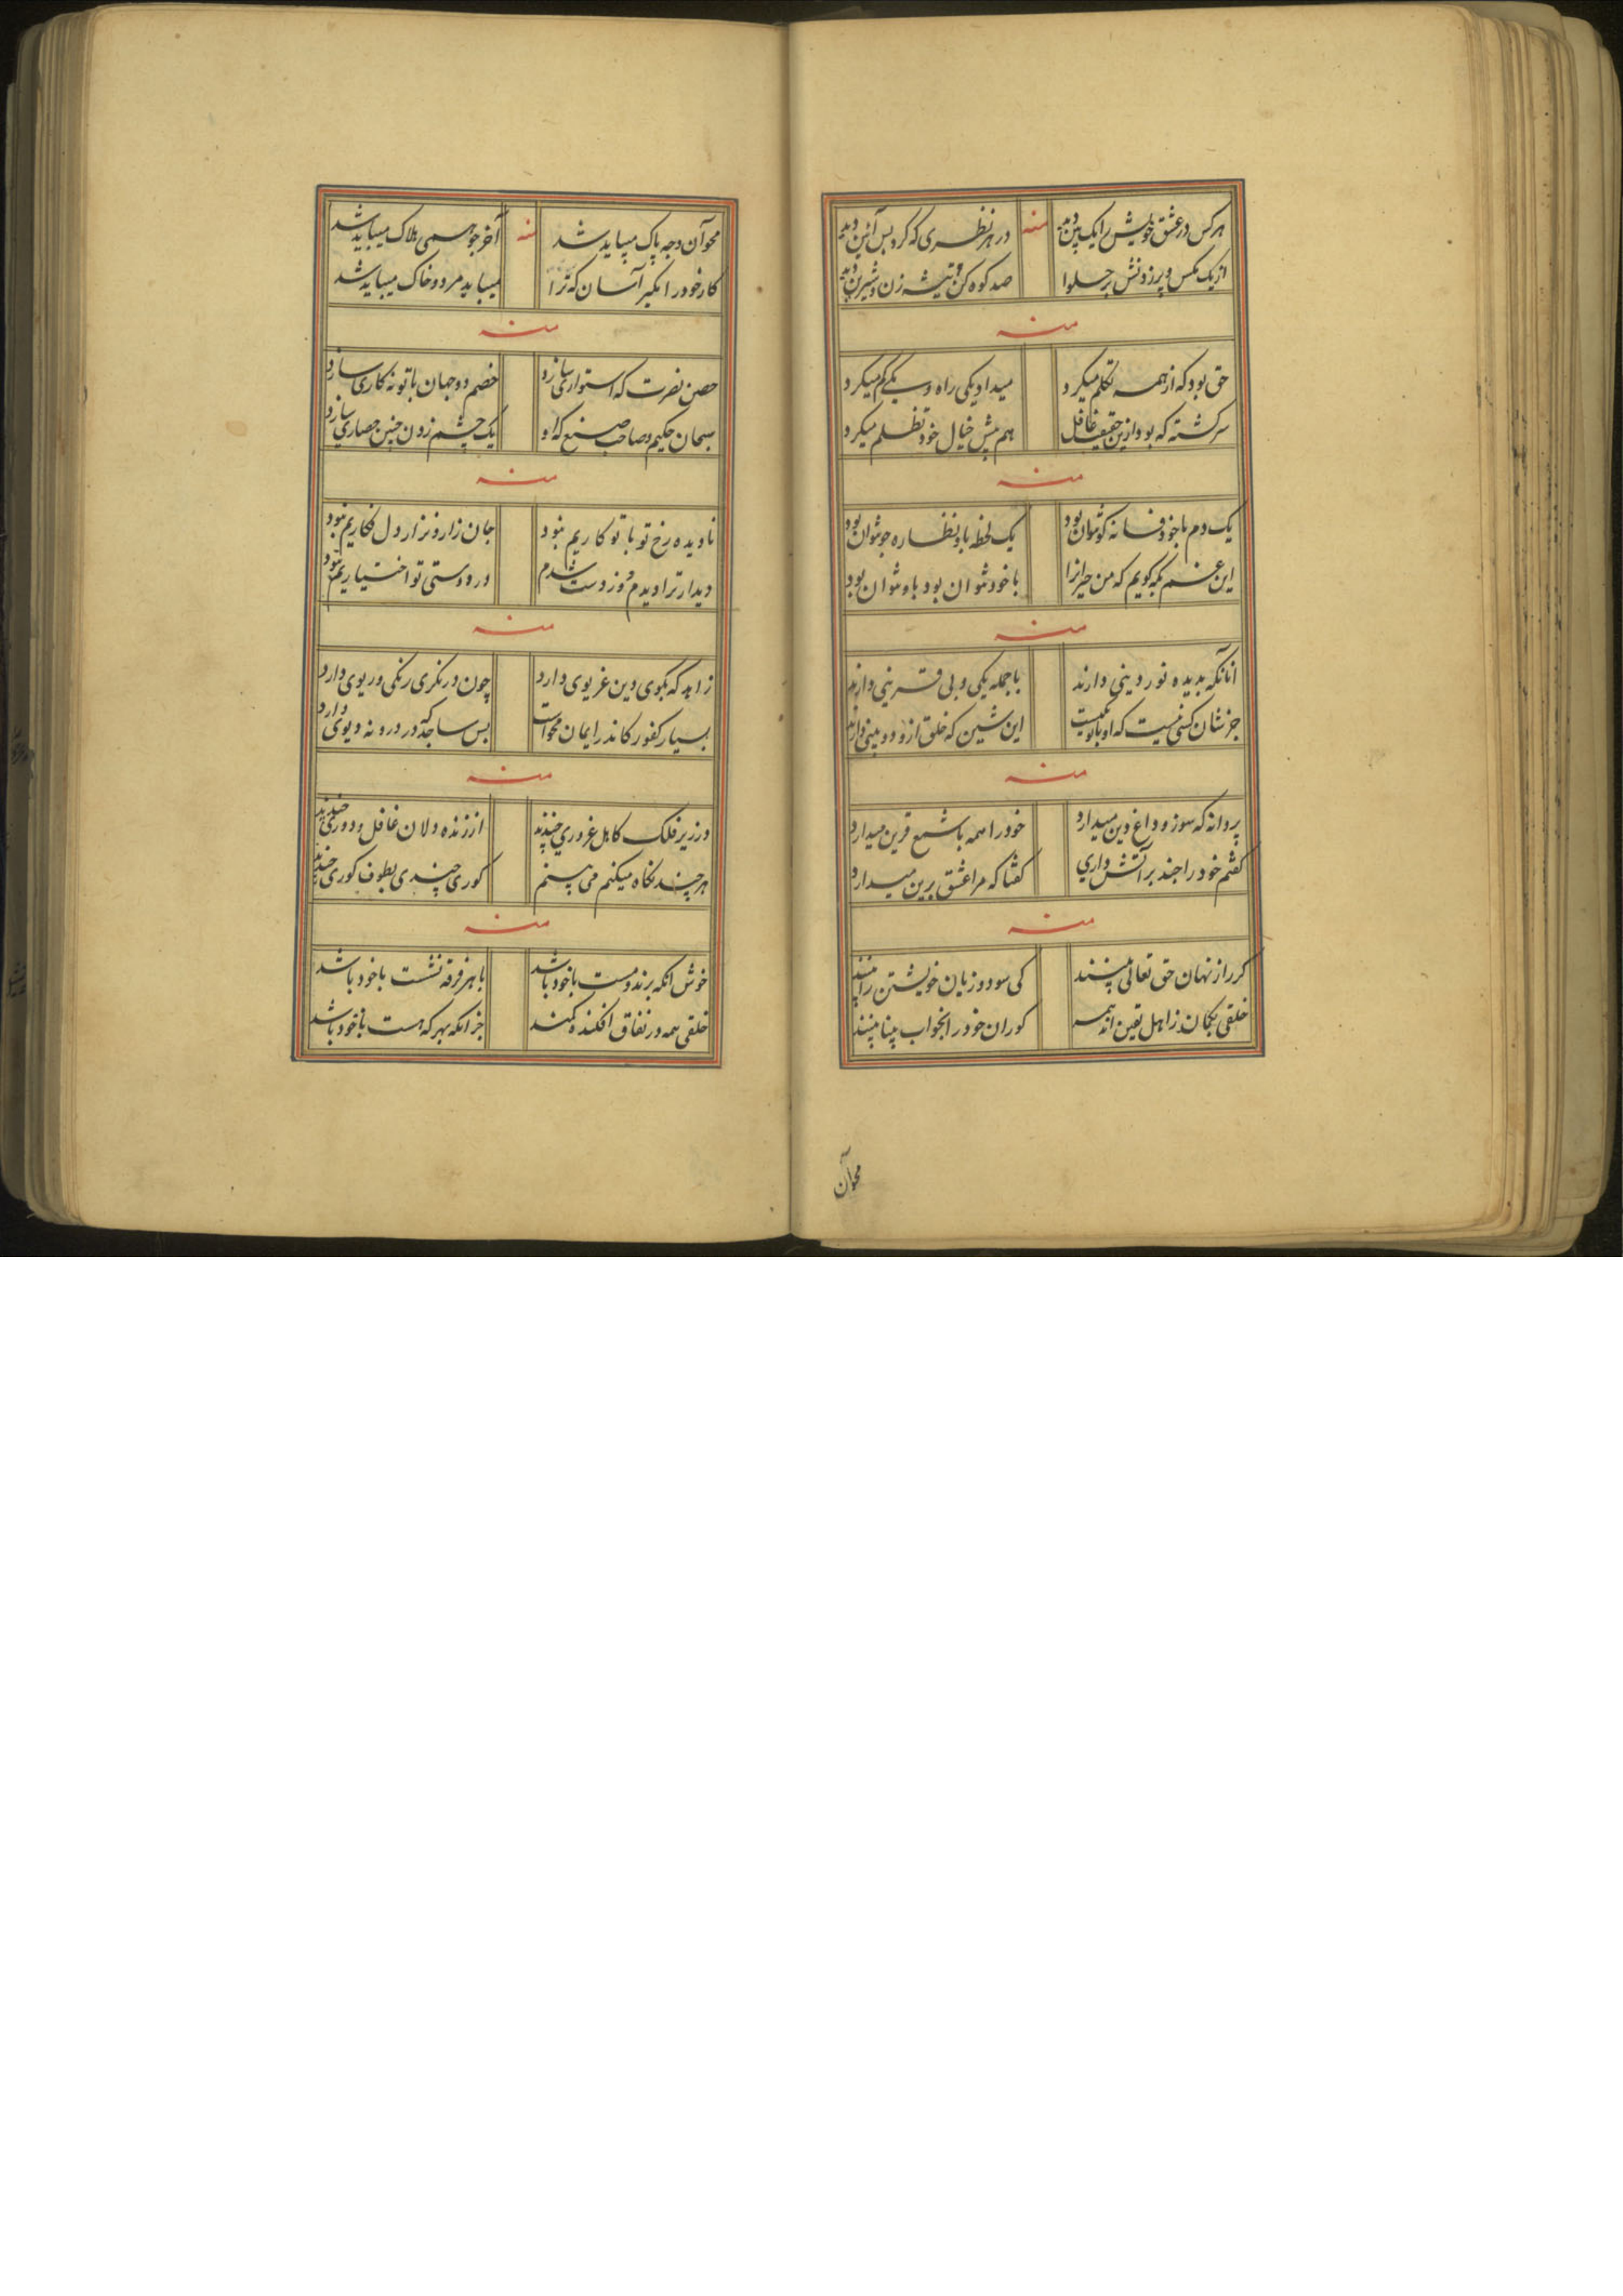 هرکس در عشق خویش را یک بین دید
منه
در هر نظری که کرد بس آئین دید
از یک مکس و پرزدنش بر حلوا
صد کوه کن و تیشه زن و شیرین دید
منه
حق بود که از همه تکلم میکرد
میداد یکی راه و یکی گم میکرد
سرگشته که بود ازین حقیقت غافل
هم پیش خیال خود تظلم میکرد
منه
یک دم با خود فسانه کو نتوان بود
یک لحظه باو نظاره جو نتوان بود
این غم بکه گویم که من حیرانرا
با خود نتوان بود باو نتوان بود
منه
آنانکه بدیده نور دینی دارند
با جمله یکی و بی قرینی دارند
جز شان کسی نیست که او با او نیست
این شین که خلق ازو دو بینی دارند
منه
پروانه که سوز و داغ دین میدارد
خود را همه با شمع قرین میدارد
گفتم خود را چند بر آتش داری
گفتا که مرا عشق برین میدارد
منه
گر راز نهان حق تعالی بینند
کی سود و زیان خویشتن را بینند
خلقی بگمان ز اهل یقین اند همه
کوران خود را بخواب بینا بینند
محو آن
محو آن وجه پاک میباید شد
منه
آخر چو همی هلاک میباید شد
کار خود را مگیر آسان که ترا
میباید مرد و خاک میباید شد
منه
حصن نصرت که استواری سازد
خصم دو جهان با تو نه کاری سازد
سبحان حکیم و صاحب صنع که او
یک چشم زدن چنین حصاری سازد
منه
نادیده رخ تو با تو کاریم نبود
جان زار و نزار و دل فکاریم نبود
دیدار ترا دیدم و از دست شدم
در دوستی تو اختیاریم نبود
منه
زاهد که بکوی دین غریوی دارد
چون در نکری رنکی و ریوی دارد
بسیار کفور کاندر ایمان محو است
بس ساجد که در درونه دیوی دارد
منه
در زیر فلک کاهل غروری چندند
از زنده دلان غافل و دوری چندند
هر چند نکاه میکنم می بینم
کوری چندی بطوف کوری چندند
منه
خوش آنکه برند و مست با خود باشد
با هر فرقه نشست با خود باشد
خلقی همه در نفاق افکنده کمند
جز آنکه بهر که هست با خود باشد